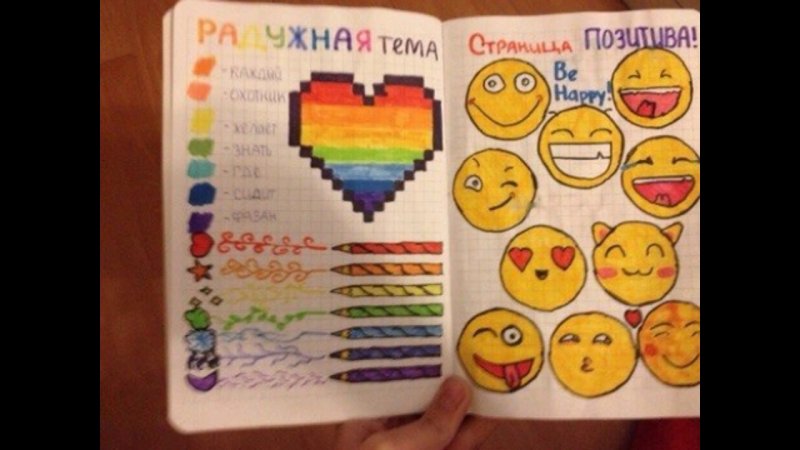 РАДУЖНАЯ ТЕМА
- КАЖДЫЙ
- ОХОТНИК
- ЖЕЛАЕТ
- ЗНАТЬ
- ГДЕ
- СИДИТ
- ФАЗАН
СТРАНИЦА ПОЗИТИВА!
Be
Happy!